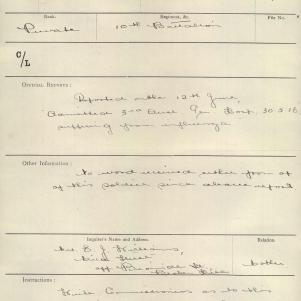 Rank.
Regiment, &c.
File No
Private 10th Battalion
C/L
Official Reports:
Reported on the 12th June,
Admitted 3rd Aust. Gen. Hosp. 30.5.18
suffering from influenza
Other Information:
No word received either from or
of this soldier since above report
Inquirer's Name and Address.
Relation.
Mrs. E. J. Williams,
off St
Broken Hill
mother
Instructions:
Write Commissioner as to this